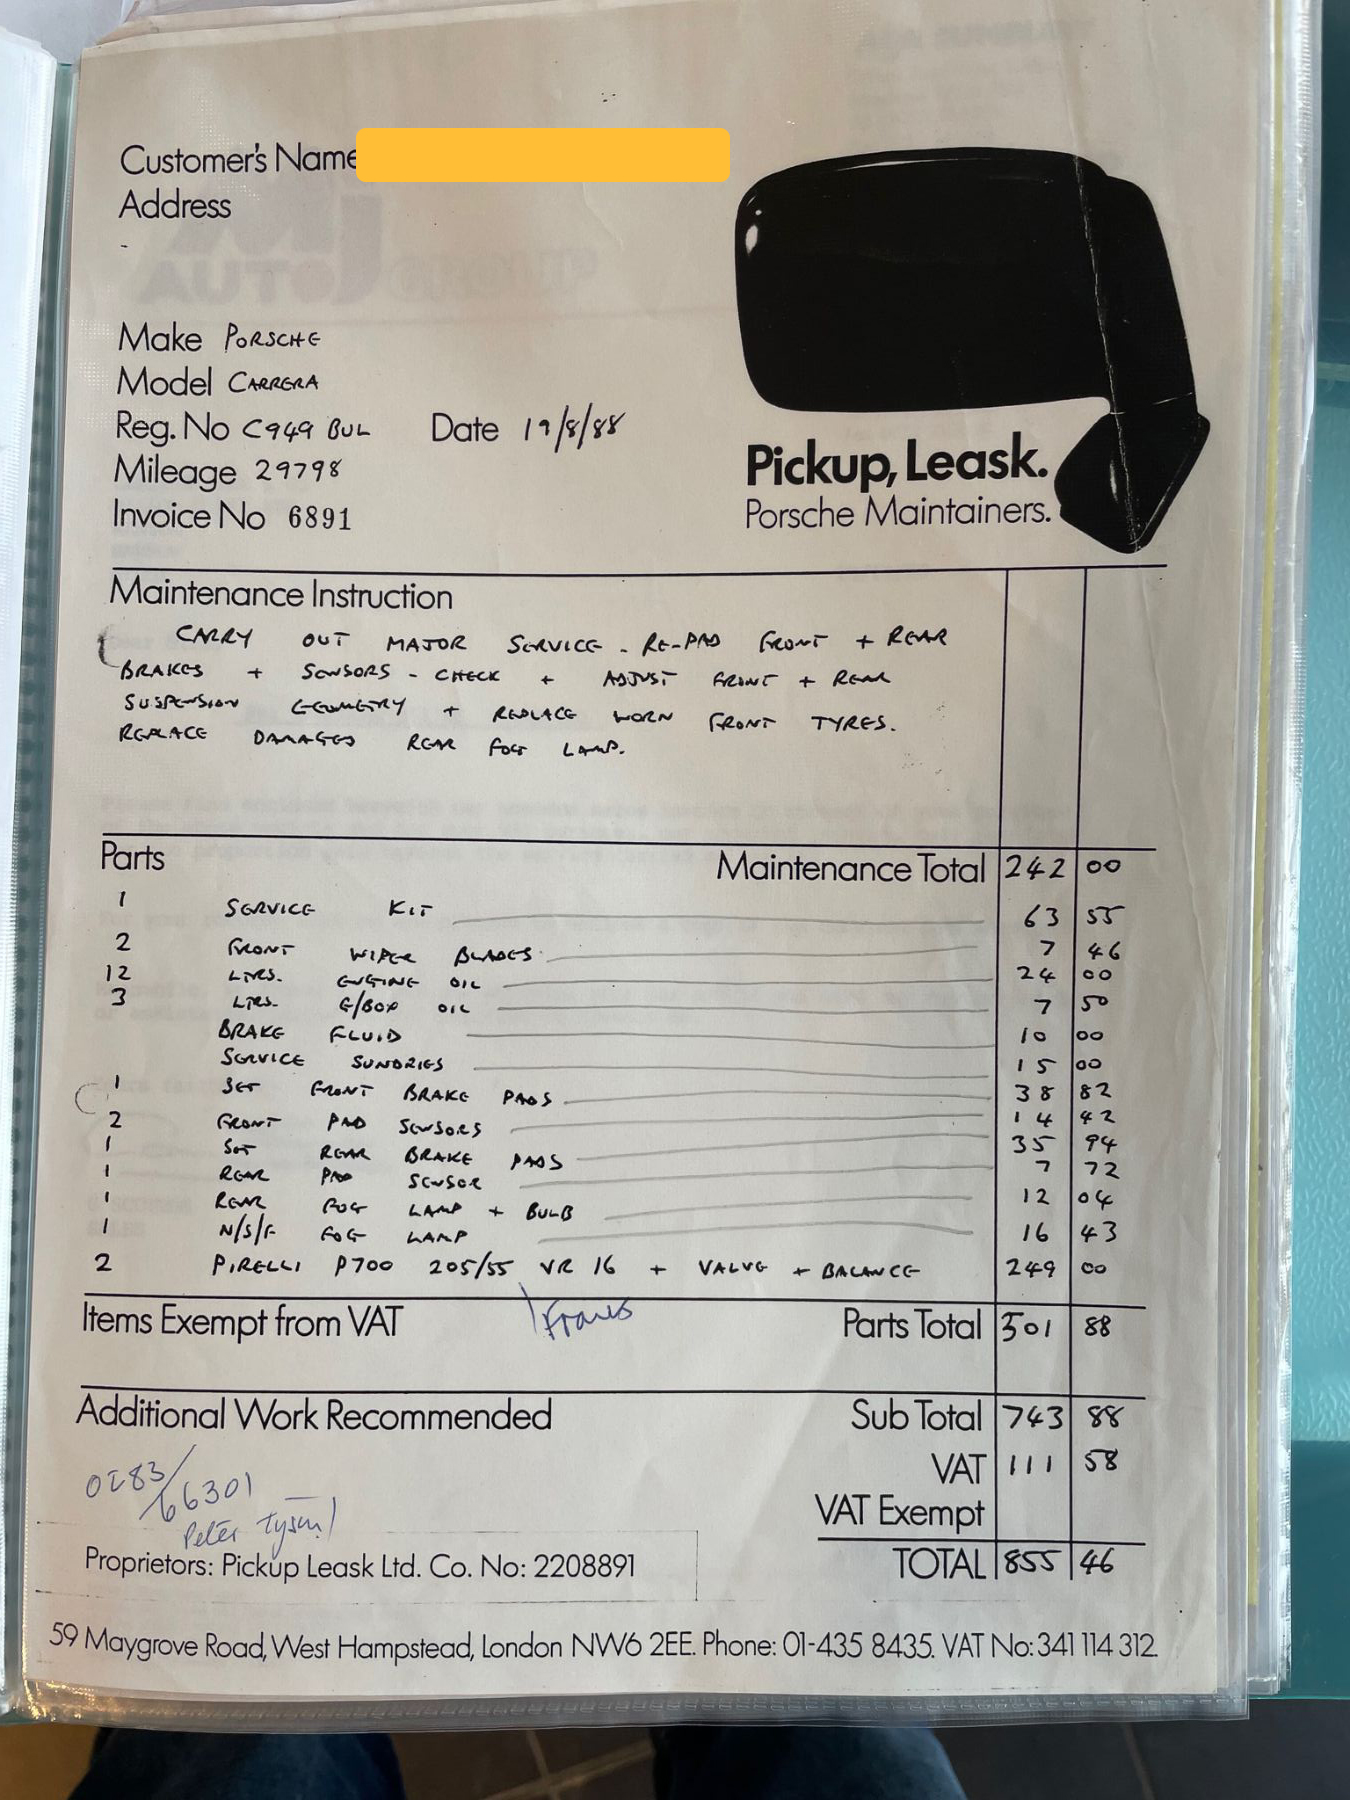 Customer's Name
Address
Make PORSCHE
Model CARRERA
Reg. No C949 BUL Date 19/8/88
Mileage 29798
Invoice No 6891
Pickup, Leask.
Porsche Maintainers.
Maintenance Instruction
CARRY OUT MAJOR SERVICE - RE-PAD FRONT + REAR
BRAKES + SENSORS - CHECK + ADJUST FRONT + REAR
SUSPENSION GEOMETRY + REPLACE WORN FRONT TYRES.
REPLACE DAMAGED REAR FOG LAMP.
Parts Maintenance Total 242 00
1 SERVICE KIT 63 55
2 FRONT WIPER BLADES 7 46
12 LTRS. ENGINE OIL 24 00
3 LTRS. G/BOX OIL 7 50
BRAKE FLUID 10 00
SERVICE SUNDRIES 15 00
1 SET FRONT BRAKE PADS 38 82
2 FRONT PAD SENSORS 14 42
1 SET REAR BRAKE PADS 35 94
1 REAR PAD SENSOR 7 72
1 REAR FOG LAMP + BULB 12 04
1 N/S/F FOG LAMP 16 43
2 PIRELLI P700 205/55 VR 16 + VALVE + BALANCE 249 00
Items Exempt from VAT Parts Total 501 88
Additional Work Recommended Sub Total 743 88
VAT 111 58
VAT Exempt
TOTAL 855 46
66301
Peter
Proprietors: Pickup Leask Ltd. Co. No: 2208891
59 Maygrove Road, West Hampstead, London NW6 2EE. Phone: 01-435 8435. VAT No: 341 114 312.